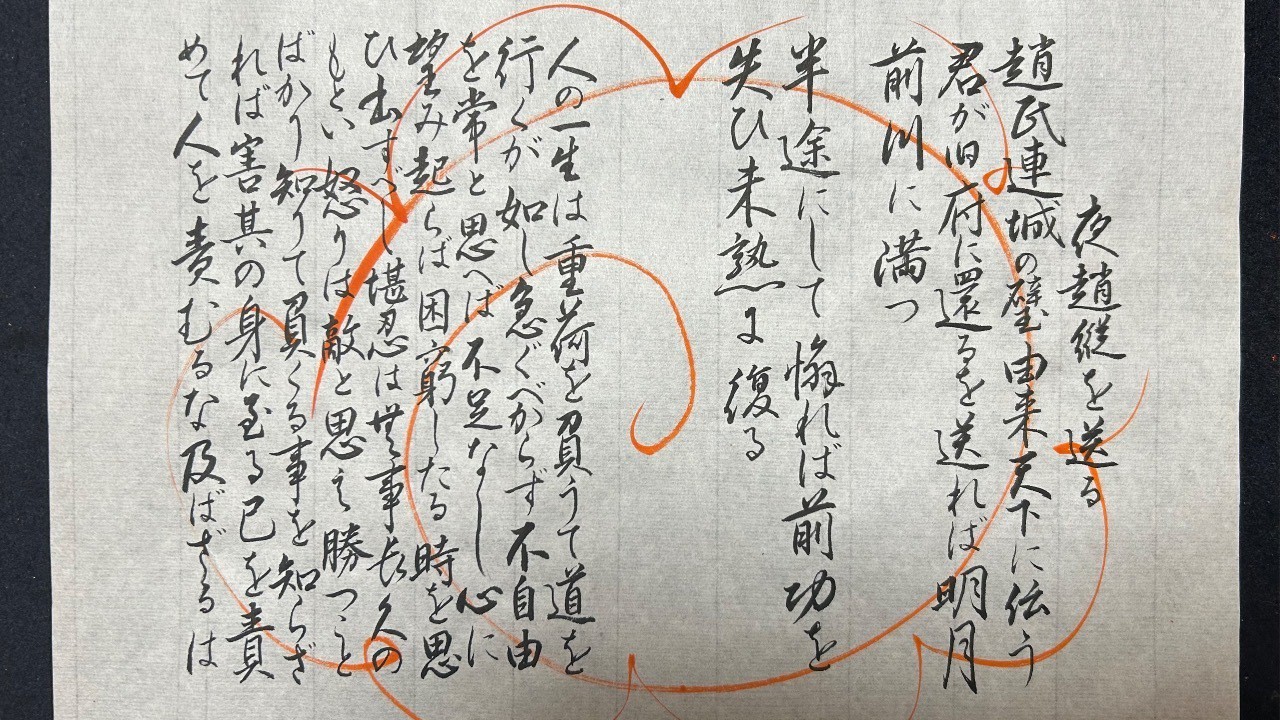 夜趙縦を送る
趙氏連城の璧由来天下に伝う
君が旧府に還るを送れば明月
前川に満つ
半途にして惰れば前功を
失ひ未熟に復る
人の一生は重荷を負うて道を
行くが如し急ぐべからず不自由
を常と思へば不足なし心に
望み起らば困窮したる時を思
ひ出すべし堪忍は無事長久の
もとい怒りは敵と思え勝つこと
ばかり知りて負くる事を知らざ
れば害其の身に至る己を責
めて人を責むるな及ばざるは